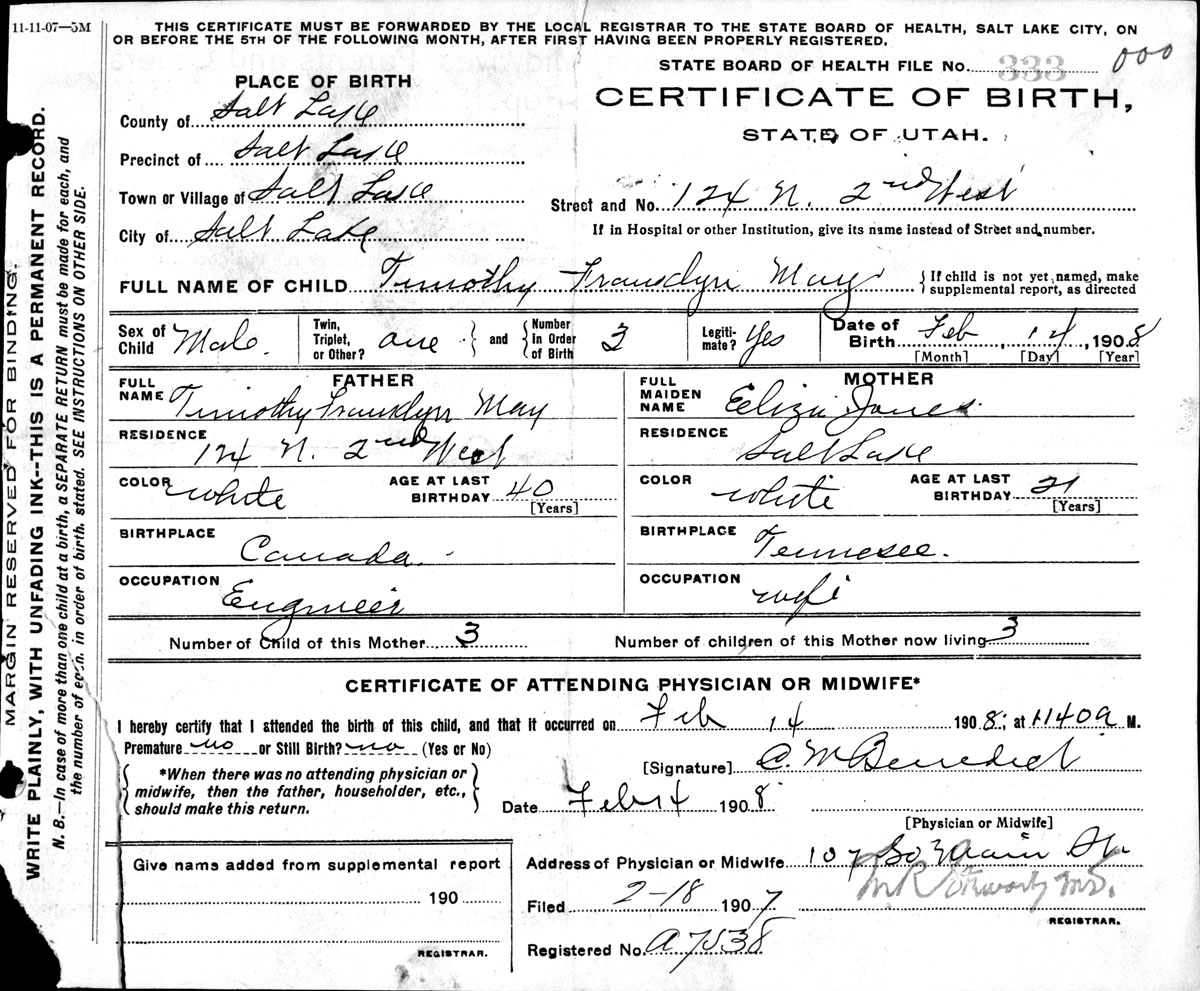 11-11-07—5M
THIS CERTIFICATE MUST BE FORWARDED BY THE LOCAL REGISTRAR TO THE STATE BOARD OF HEALTH, SALT LAKE CITY, ON
OR BEFORE THE 5TH OF THE FOLLOWING MONTH, AFTER FIRST HAVING BEEN PROPERLY REGISTERED.
STATE BOARD OF HEALTH FILE No. 333 000
PLACE OF BIRTH
CERTIFICATE OF BIRTH,
STATE OF UTAH.
County of Salt Lake
Precinct of Salt Lake
Town or Village of Salt Lake
City of Salt Lake
Street and No. 124 N. 2nd West
If in Hospital or other Institution, give its name instead of Street and number.
FULL NAME OF CHILD Timothy May { If child is not yet named, make
supplemental report, as directed
Sex of Child Male. Twin, Triplet, or Other? one and Number In Order of Birth 3 Legiti-mate? Yes Date of Birth Feb 14, 1908
[Month] [Day] [Year]
FATHER
FULL NAME Timothy May
RESIDENCE 124 N. 2nd West
COLOR White AGE AT LAST BIRTHDAY 40
[Years]
BIRTHPLACE Canada.
OCCUPATION Engineer
MOTHER
FULL MAIDEN NAME Jones
RESIDENCE Salt Lake
COLOR White AGE AT LAST BIRTHDAY 21
[Years]
BIRTHPLACE Tennesee.
OCCUPATION wife
Number of Child of this Mother 3 Number of children of this Mother now living 3
CERTIFICATE OF ATTENDING PHYSICIAN OR MIDWIFE*
I hereby certify that I attended the birth of this child, and that it occurred on Feb 14 1908; at 1140a M.
Premature no or Still Birth? no (Yes or No)
*When there was no attending physician or
midwife, then the father, householder, etc.,
should make this return.
[Signature] C. M Benedict
Date Feb 14 1908
[Physician or Midwife]
Give name added from supplemental report
190
REGISTRAR.
Address of Physician or Midwife 107 So Main St.
Filed 2-18 1907
REGISTRAR.
Registered No. A7538
MARGIN RESERVED FOR BINDING.
WRITE PLAINLY, WITH UNFADING INK--THIS IS A PERMANENT RECORD.
N. B.—In case of more than one child at a birth, a SEPARATE RETURN must be made for each, and
the number of each, in order of birth, stated. SEE INSTRUCTIONS ON OTHER SIDE.